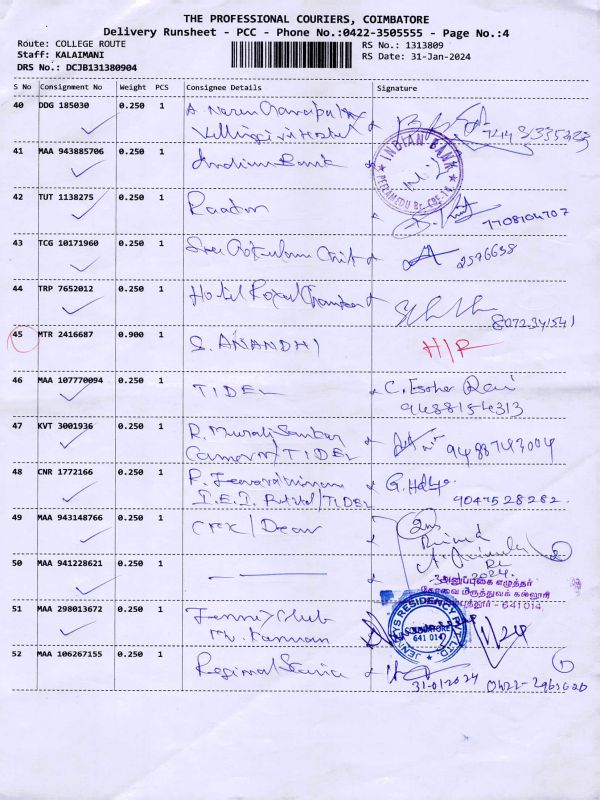 THE PROFESSIONAL COURIERS, COIMBATORE
Delivery Runsheet - PCC - Phone No.:0422-3505555 - Page No.:4
Route: COLLEGE ROUTE
Staff: KALAIMANI
DRS No.: DCJB131380904
RS No.: 1313809
RS Date: 31-Jan-2024
S No Consignment No Weight PCS Consignee Details Signature
40 DDG 185030 0.250 1
41 MAA 943885706 0.250 1 Indian Bank
INDIAN BANK
PEELAMEDU Br. CBE-14
42 TUT 1138275 0.250 1
7708104707
43 TCG 10171960 0.250 1 2576658
44 TRP 7652012 0.250 1 Hotel Royal
8072341541
45 MTR 2416687 0.900 1 S. ANANDHI
46 MAA 107770094 0.250 1 TIDEL C. Esther Rani
9488154313
47 KVT 3001936 0.250 1 R. Murali Sankar
TIDEL 9488743004
48 CNR 1772166 0.250 1
TIDEL 9047528282
49 MAA 943148766 0.250 1 / Dean
50 MAA 941228621 0.250 1
அனுப்புகை எழுத்தர்
கோவை மருத்துவக் கல்லூரி
641 014
51 MAA 298013672 0.250 1 Jennys Club
Mr. Kannan
JENNEYS RESIDENCY PVT. LTD.
COIMBATORE
641 014
52 MAA 106267155 0.250 1 Regional
31-01-2024 0422-2963620